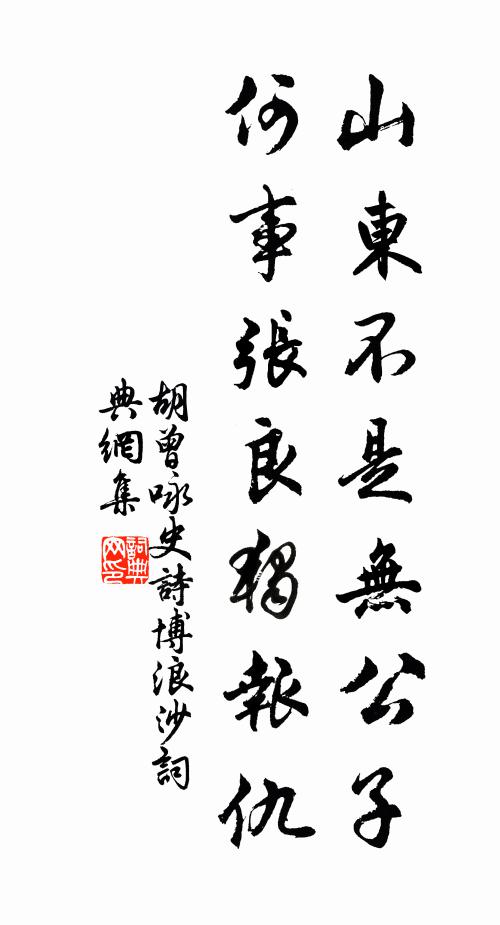 山東不是無公子
何事張良獨報仇
胡曾咏史詩博浪沙詞
典網集
詞典網印